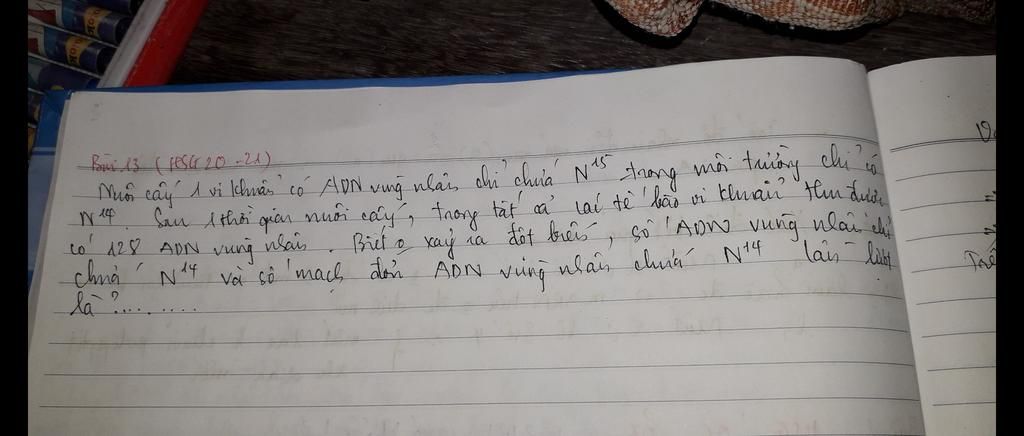 Bài 13 (HSG 20-21)
Nuôi cấy 1 vi khuẩn có ADN vùng nhân chỉ chứa N15 trong môi trường chỉ có
N14. Sau 1 thời gian nuôi cấy, trong tất cả các tế bào vi khuẩn thu được
có 128 ADN vùng nhân. Biết o xảy ra đột biến, số ADN vùng nhân chỉ
chứa N14 và số mạch đơn ADN vùng nhân chứa N14 lần lượt
là?.........